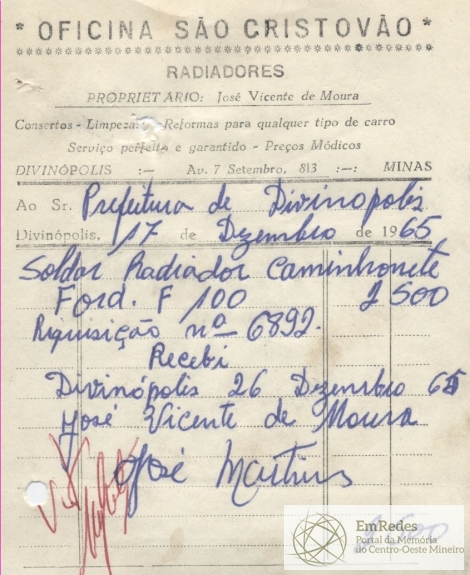 * OFICINA SÃO CRISTOVÃO *
RADIADORES
PROPRIETARIO: José Vicente de Moura
Consertos - Limpezas - Reformas para qualquer tipo de carro
Serviço perfeito e garantido - Preços Módicos
DIVINÓPOLIS :— Av. 7 Setembro, 813 :—: MINAS
Ao Sr. Prefeitura de Divinopolis
Divinópolis, 17 de Dezembro de 1965
Soldar Radiador Caminhonete
Ford. F 100 2 500
Riquisição nº 6892.
Recebi
Divinópolis 26 Dezembro 65
José Vicente de Moura
José Martins
2.500
EmRedes
Portal da Memória
do Centro-Oeste Mineiro